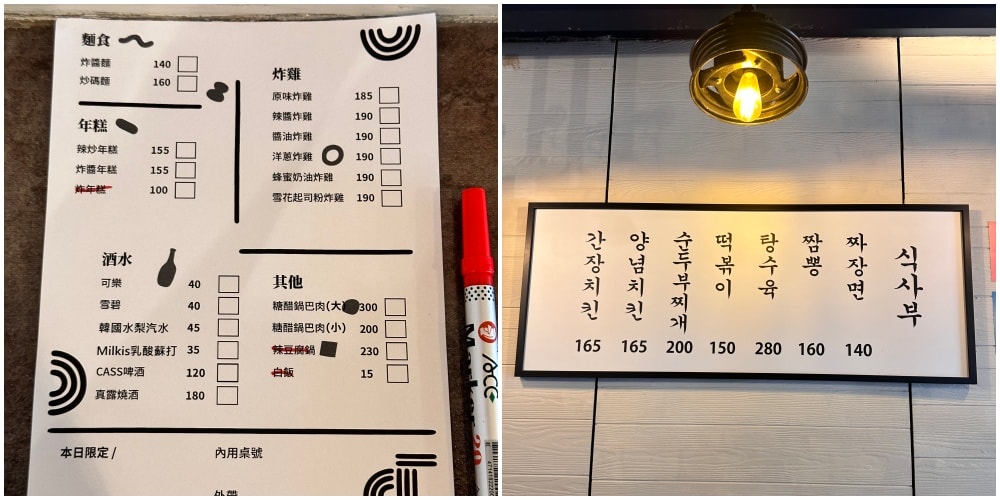 麵食
炸醬麵 140
炒碼麵 160
年糕
辣炒年糕 155
炸醬年糕 155
炸年糕 100
炸雞
原味炸雞 185
辣醬炸雞 190
醬油炸雞 190
洋蔥炸雞 190
蜂蜜奶油炸雞 190
雪花起司粉炸雞 190
酒水
可樂 40
雪碧 40
韓國水梨汽水 45
Milkis乳酸蘇打 35
CASS啤酒 120
真露燒酒 180
其他
糖醋鍋巴肉(大) 300
糖醋鍋巴肉(小) 200
辣豆腐鍋 230
白飯 15
本日限定 /
內用桌號
外帶
Marker 20
ACC
식사부
짜장면 140
짬뽕 160
탕수육 280
떡볶이 150
순두부찌개 200
양념치킨 165
간장치킨 165